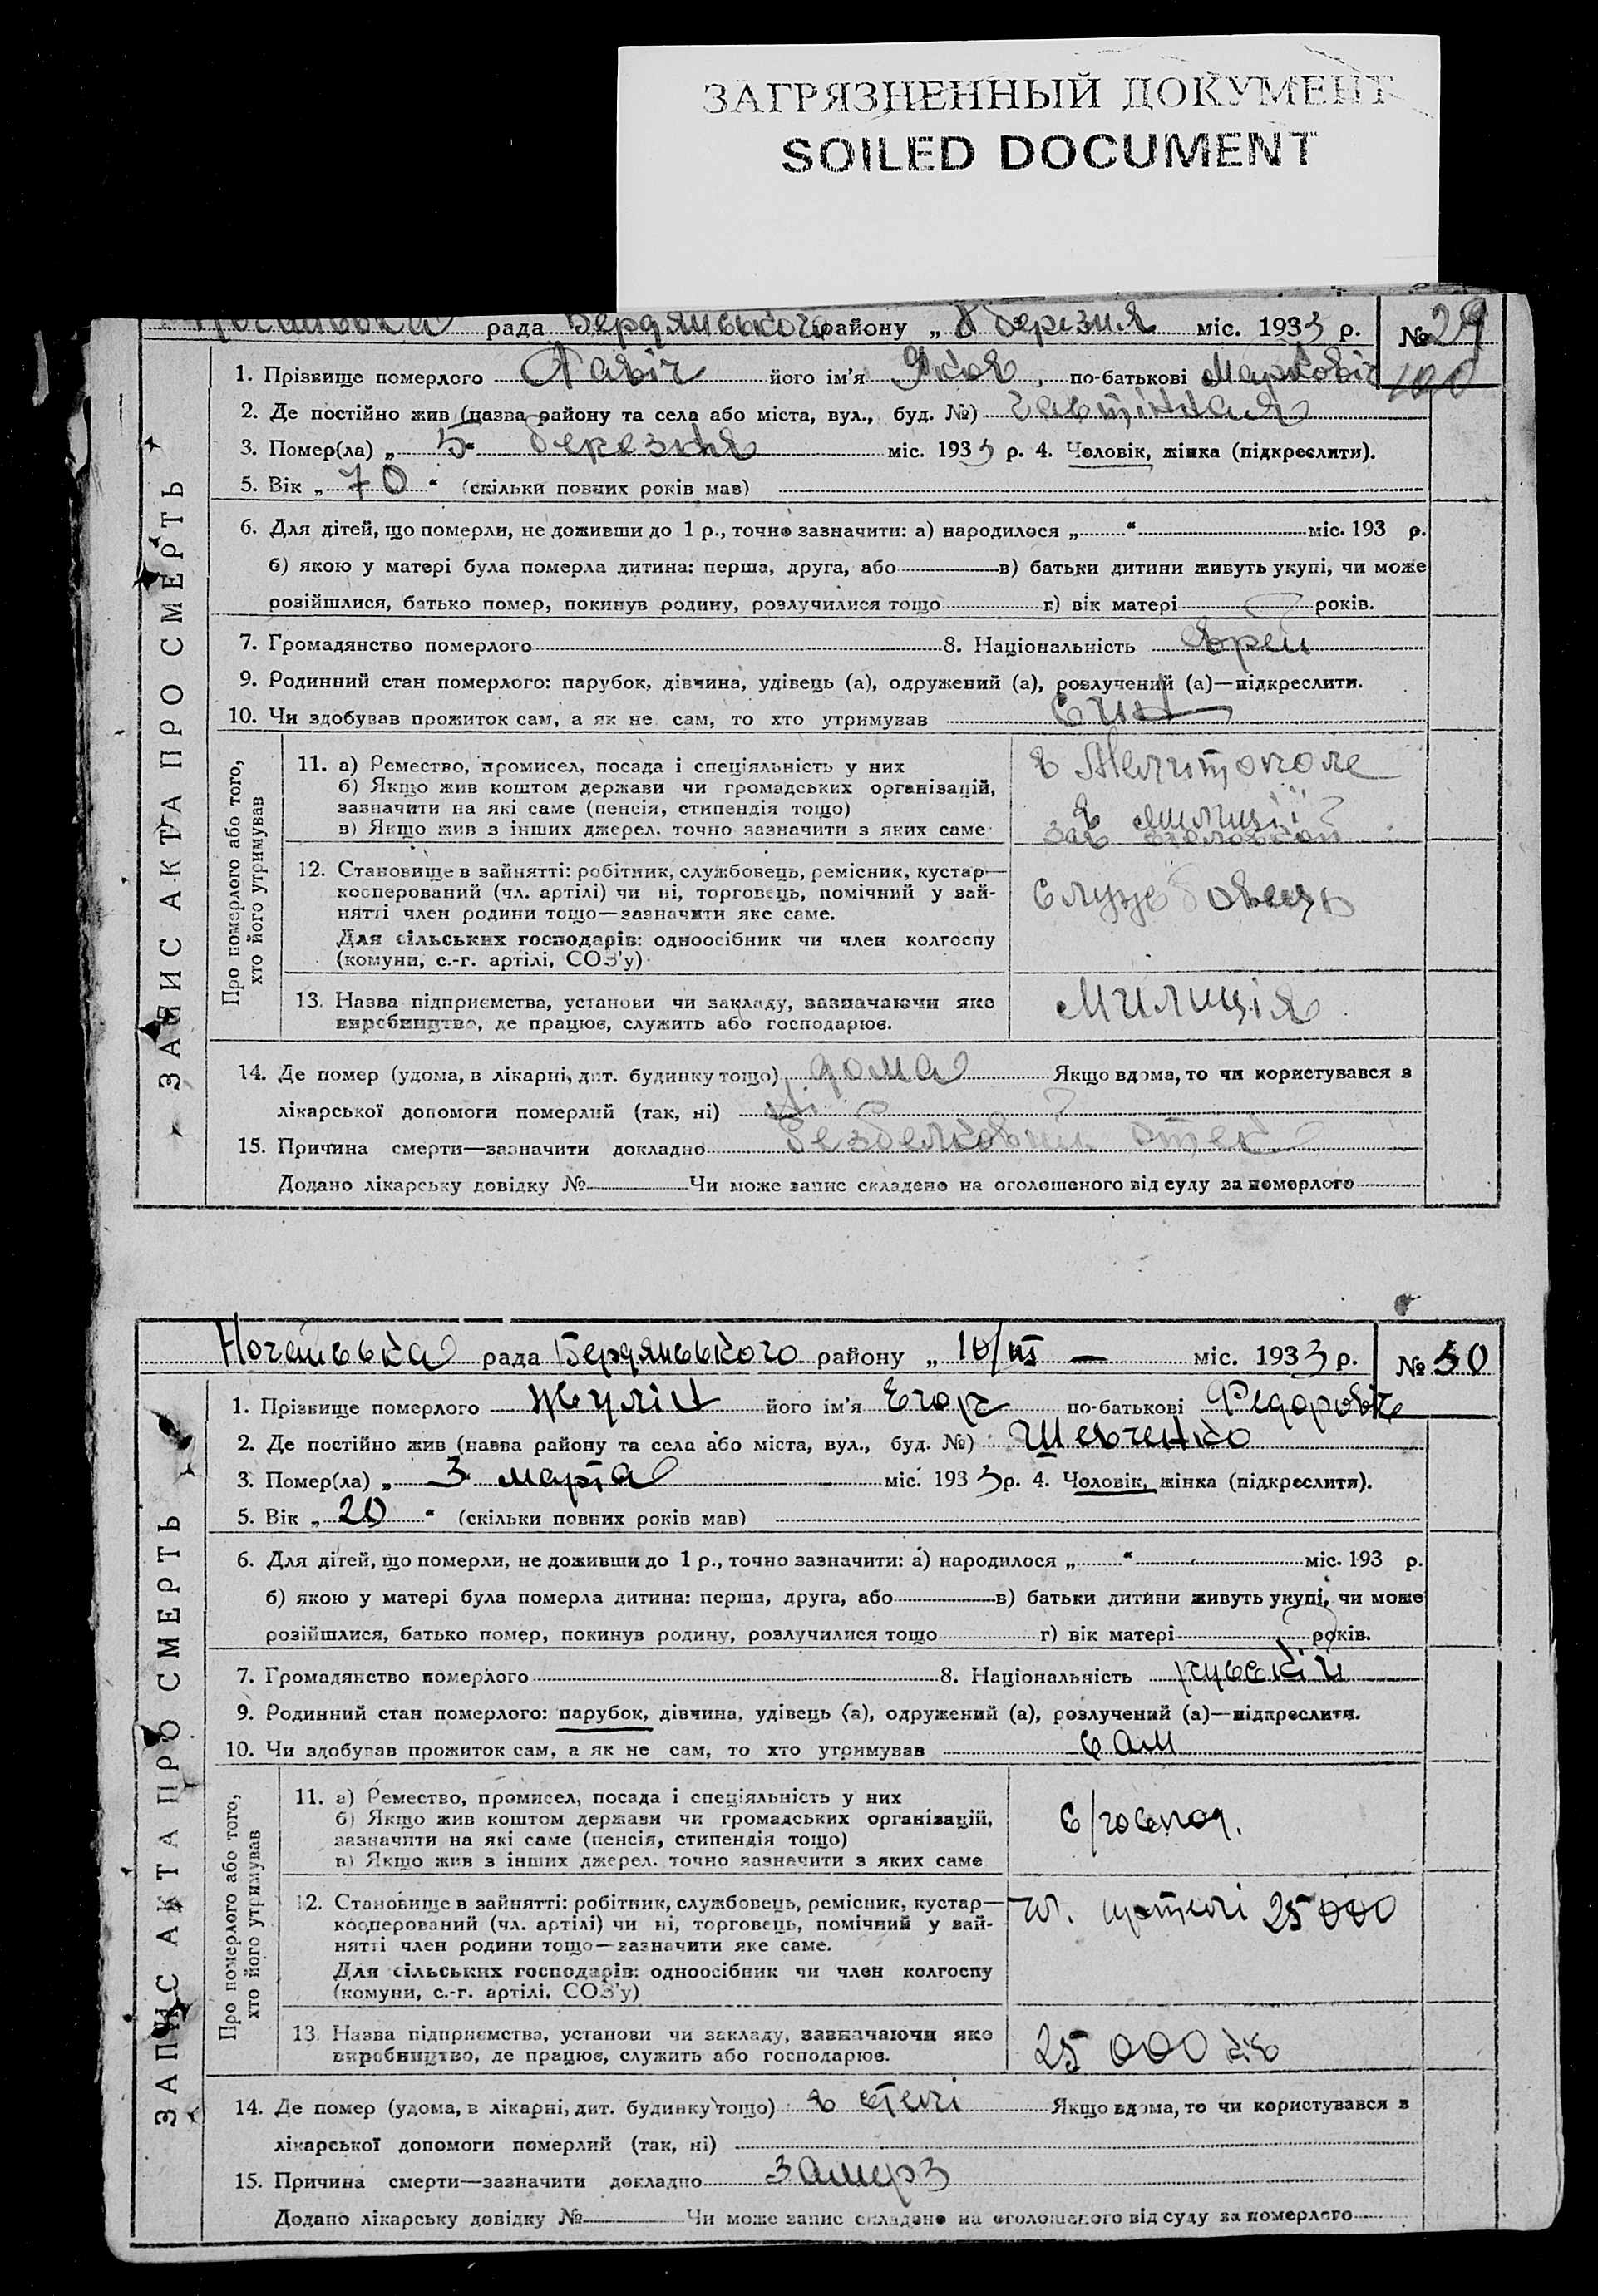 ЗАГРЯЗНЕННЫЙ ДОКУМЕНТ
SOILED DOCUMENT
рада Бердянського району „ 8 березня міс. 1933 р. № 29
1. Прізвище померлого його ім'я Яков, по-батькові Маркович 100
2. Де постійно жив (назва району та села або міста, вул., буд. №)
3. Помер(ла) „ 5 березня міс. 1933 р. 4. Чоловік, жінка (підкреслити).
5. Вік „ 70 “ (скільки повних років мав)
6. Для дітей, що померли, не доживши до 1 р., точно зазначити: а) народилося „ “ міс. 193 р.
б) якою у матері була померла дитина: перша, друга, або в) батьки дитини живуть укупі, чи може
розійшлися, батько помер, покинув родину, розлучилися тощо г) вік матері років.
7. Громадянство померлого 8. Національність Єврей
9. Родинний стан померлого: парубок, дівчина, удівець (а), одружений (а), розлучений (а)—підкреслити.
10. Чи здобував прожиток сам, а як не сам, то хто утримував Син
ЗАПИС АКТА ПРО СМЕРТЬ
Про померлого або того, хто його утримував
11. а) Ремество, промисел, посада і спеціяльність у них
б) Якщо жив коштом держави чи громадських організацій,
зазначити на які саме (пенсія, стипендія тощо)
в) Якщо жив з інших джерел. точно зазначити з яких саме
в Мелитополе
в милиції
зав
12. Становище в зайнятті: робітник, службовець, ремісник, кустар—
кооперований (чл. артілі) чи ні, торговець, помічний у зай-
нятті член родини тощо—зазначити яке саме.
Для сільських господарів: одноосібник чи член колгоспу
(комуни, с.-г. артілі, СОЗ'у)
Службовець
13. Назва підприємства, установи чи закладу, зазначаючи яке
виробництво, де працює, служить або господарює.
Милиція
14. Де помер (удома, в лікарні, дит. будинку тощо) дома Якщо вдома, то чи користувався з
лікарської допомоги померлий (так, ні) ні
15. Причина смерти—зазначити докладно Безбелковий отек
Додано лікарську довідку № Чи може запис складено на оголошеного від суду за померлого
Ногайська рада Бердянського району „ 10/III — міс. 1933 р. № 30
1. Прізвище померлого Жулін його ім'я Егор по-батькові Федоровіч
2. Де постійно жив (назва району та села або міста, вул., буд. №) Шевченко
3. Помер(ла) „ 3 марта міс. 1933 р. 4. Чоловік, жінка (підкреслити).
5. Вік „ 20 “ (скільки повних років мав)
6. Для дітей, що померли, не доживши до 1 р., точно зазначити: а) народилося „ “ міс. 193 р.
б) якою у матері була померла дитина: перша, друга, або в) батьки дитини живуть укупі, чи може
розійшлися, батько помер, покинув родину, розлучилися тощо г) вік матері років.
7. Громадянство померлого 8. Національність руский
9. Родинний стан померлого: парубок, дівчина, удівець (а), одружений (а), розлучений (а)—підкреслити.
10. Чи здобував прожиток сам, а як не сам, то хто утримував сам
ЗАПИС АКТА ПРО СМЕРТЬ
Про померлого або того, хто його утримував
11. а) Ремество, промисел, посада і спеціяльність у них
б) Якщо жив коштом держави чи громадських організацій,
зазначити на які саме (пенсія, стипендія тощо)
в) Якщо жив з інших джерел. точно зазначити з яких саме
С/господ.
12. Становище в зайнятті: робітник, службовець, ремісник, кустар—
кооперований (чл. артілі) чи ні, торговець, помічний у зай-
нятті член родини тощо—зазначити яке саме.
Для сільських господарів: одноосібник чи член колгоспу
(комуни, с.-г. артілі, СОЗ'у)
чл. артилі 25000
13. Назва підприємства, установи чи закладу, зазначаючи яке
виробництво, де працює, служить або господарює.
25 000 ків
14. Де помер (удома, в лікарні, дит. будинку тощо) в степі Якщо вдома, то чи користувався з
лікарської допомоги померлий (так, ні)
15. Причина смерти—зазначити докладно Замерз
Додано лікарську довідку № Чи може запис складено на оголошеного від суду за померлого